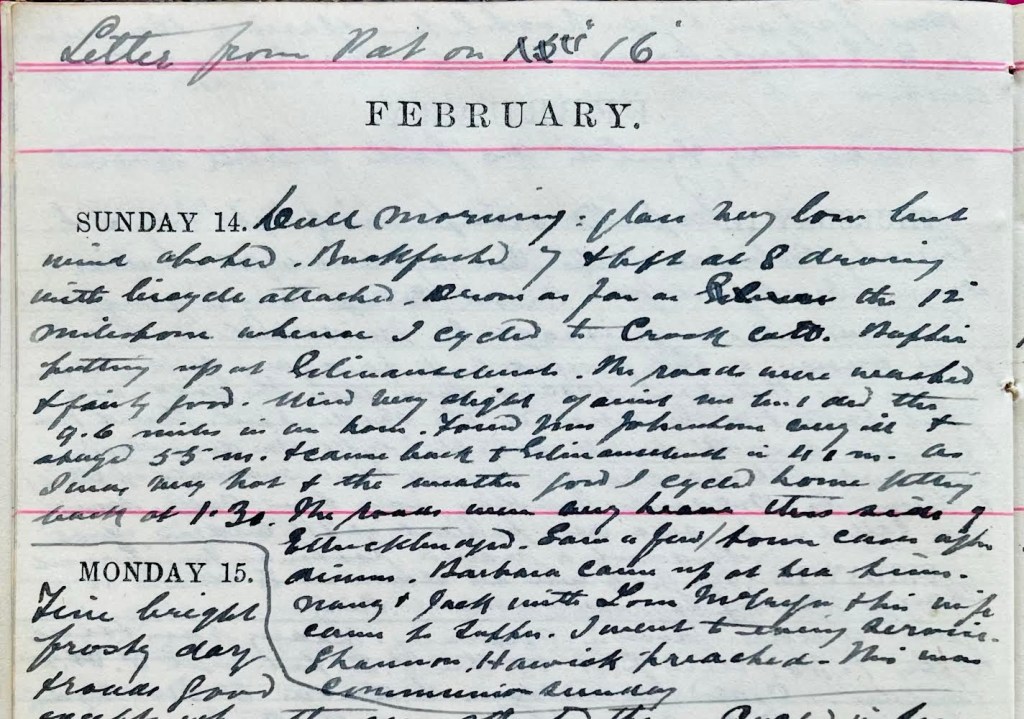 Letter from Pat on 15th 16
FEBRUARY.
SUNDAY 14. Dull morning: glass very low but
wind abated. Breakfasted & left at 8 driving
with bicycle attached. Drove as far as the 12
milestone whence I cycled to Crook
putting up at . The roads were washed
& fairly good. Wind very slight against me but I did the
9.6 miles in an hour. Found Mrs Johnstone very ill &
stayed 55 m. & came back to in 41 m. As
I was very hot & the weather good I cycled home getting
back at 1.30. The roads were very heavy this side of
Ettrickbridge. Saw a few town cases after
dinner. Barbara came up at tea time.
Nancy & Jack with Tom & his wife
came to supper. I went to evening service.
Shannon, Hawick preached. This was
Communion Sunday
MONDAY 15.
Fine bright
frosty day
& roads good